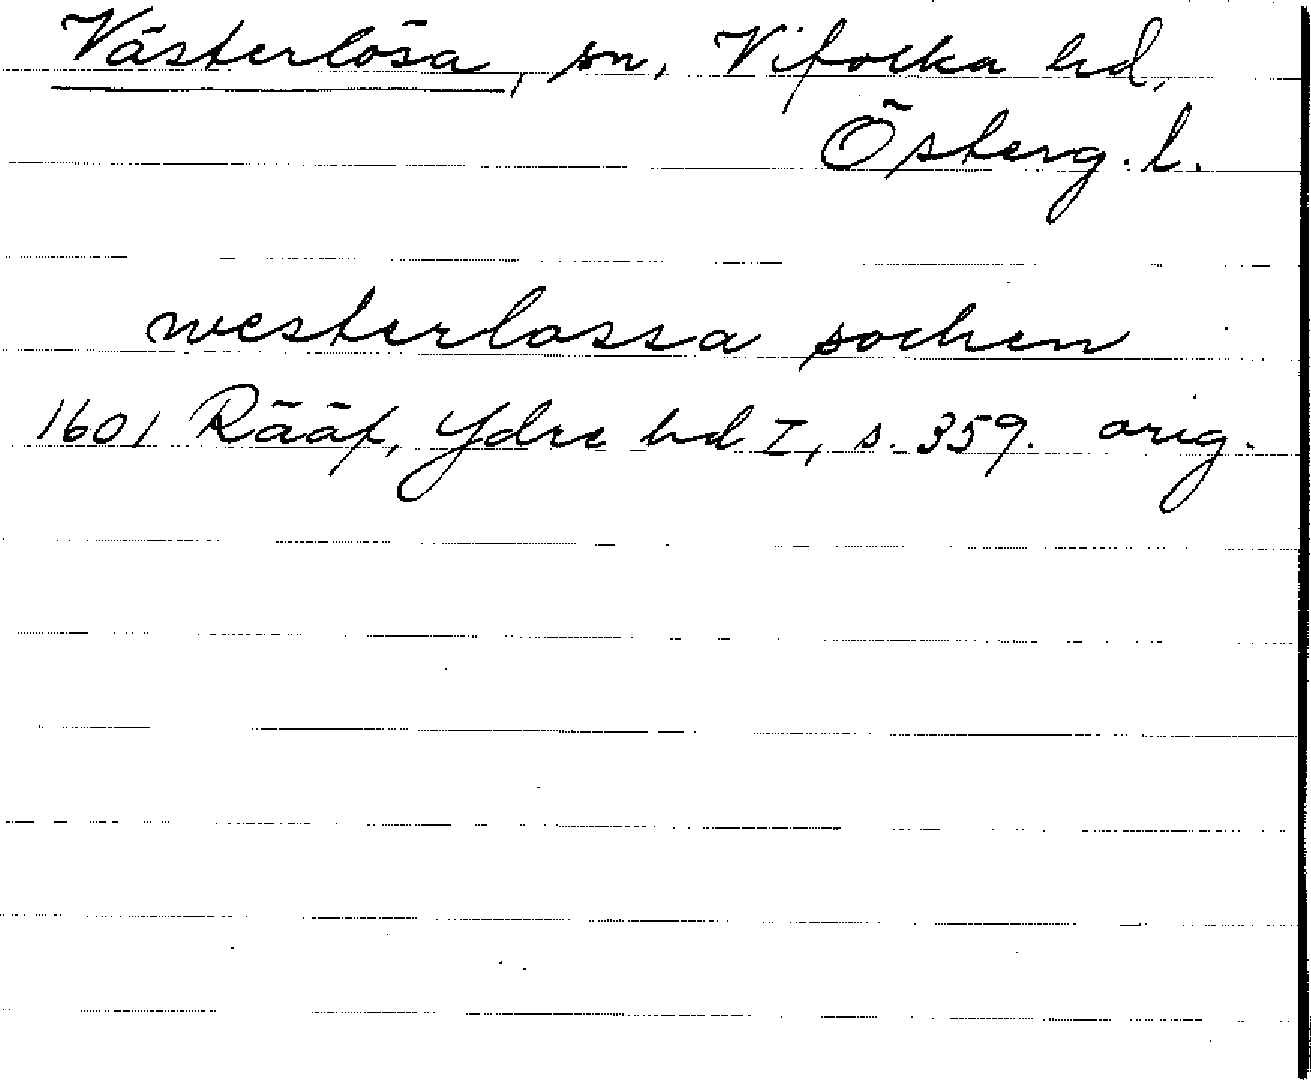 Västerlösa, sn, Vifolka hd,
Österg. l.
westerlossa sochen
1601 Rääf, Ydre hd I, s. 359. orig.